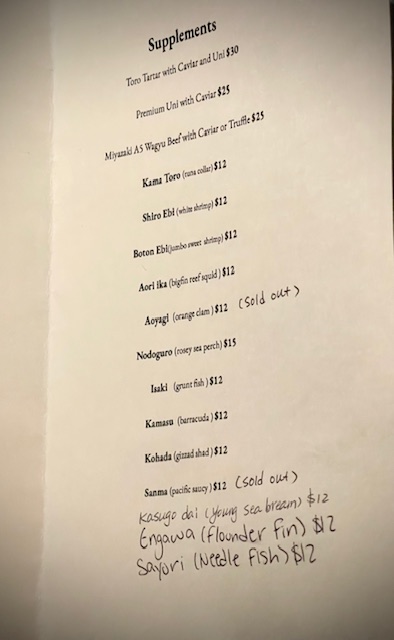 Supplements
Toro Tartar with Caviar and Uni $30
Premium Uni with Caviar $25
Miyazaki A5 Wagyu Beef with Caviar or Truffle $25
Kama Toro (tuna collar) $12
Shiro Ebi (white shrimp) $12
Boton Ebi(jumbo sweet shrimp) $12
Aori ika (bigfin reef squid) $12
Aoyagi (orange clam) $12 (Sold out)
Nodoguro (rosey sea perch) $15
Isaki (grunt fish) $12
Kamasu (barracuda) $12
Kohada (gizzad shad) $12
Sanma (pacific saucy) $12 (Sold out)
Kasugo dai (young sea bream) $12
Engawa (flounder fin) $12
Sayori (Needle fish) $12